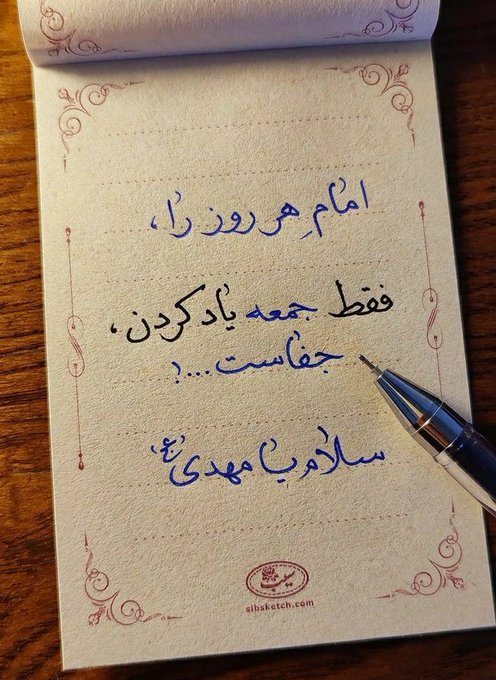 امامِ هر روز را،
فقط جمعه یاد کردن،
جفاست...!
سلام یا مهدی(ع)
سیب
sibsketch.com